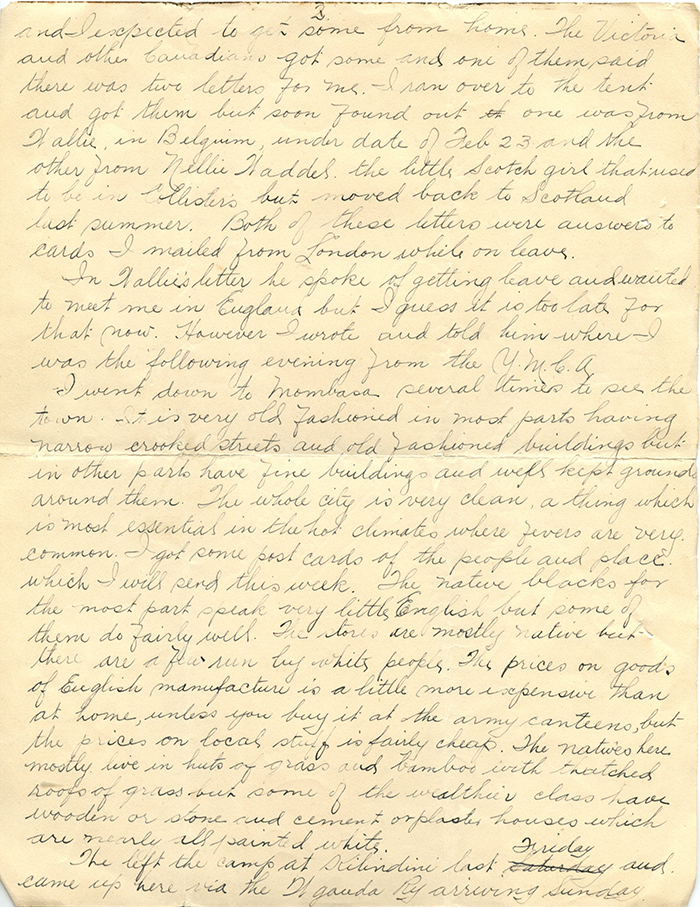 3
and I expected to get some from home. The Victoria
and other Canadians got some and one of them said
there was two letters for me. I ran over to the tent
and got them but soon found out th one was from
Wallie, in Belgium, under date of Feb 23 and the
other from Nellie Waddel. the little Scotch girl that used
to be in Ellister's but moved back to Scotland
last summer. Both of these letters were answers to
cards I mailed from London while on leave.
In Wallie's letter he spoke of getting leave and wanted
to meet me in England but I guess it is too late for
that now. However I wrote and told him where I
was the following evening from the Y.M.C.A
I went down to Mombasa several times to see the
town. It is very old fashioned in most parts having
narrow crooked streets and old fashioned buildings but
in other parts have fine buildings and well kept grounds
around them. The whole city is very clean, a thing which
is most essential in the hot climates where fevers are very
common. I got some post cards of the people and place.
which I will send this week. The native blacks for
the most part speak very little English but some of
them do fairly well. The stores are mostly native but
there are a few run by white people. The prices on goods
of English manufacture is a little more expensive than
at home, unless you buy it at the army canteens, but
the prices on local stuff is fairly cheap. The natives here
mostly live in huts of grass and bamboo with thatched
roofs of grass but some of the wealthier class have
wooden or stone and cement or plaster houses which
are nearly all painted white.
The left the camp at Kilindini last Saturday Friday and
came up here via the Uganda Ry arriving Sunday